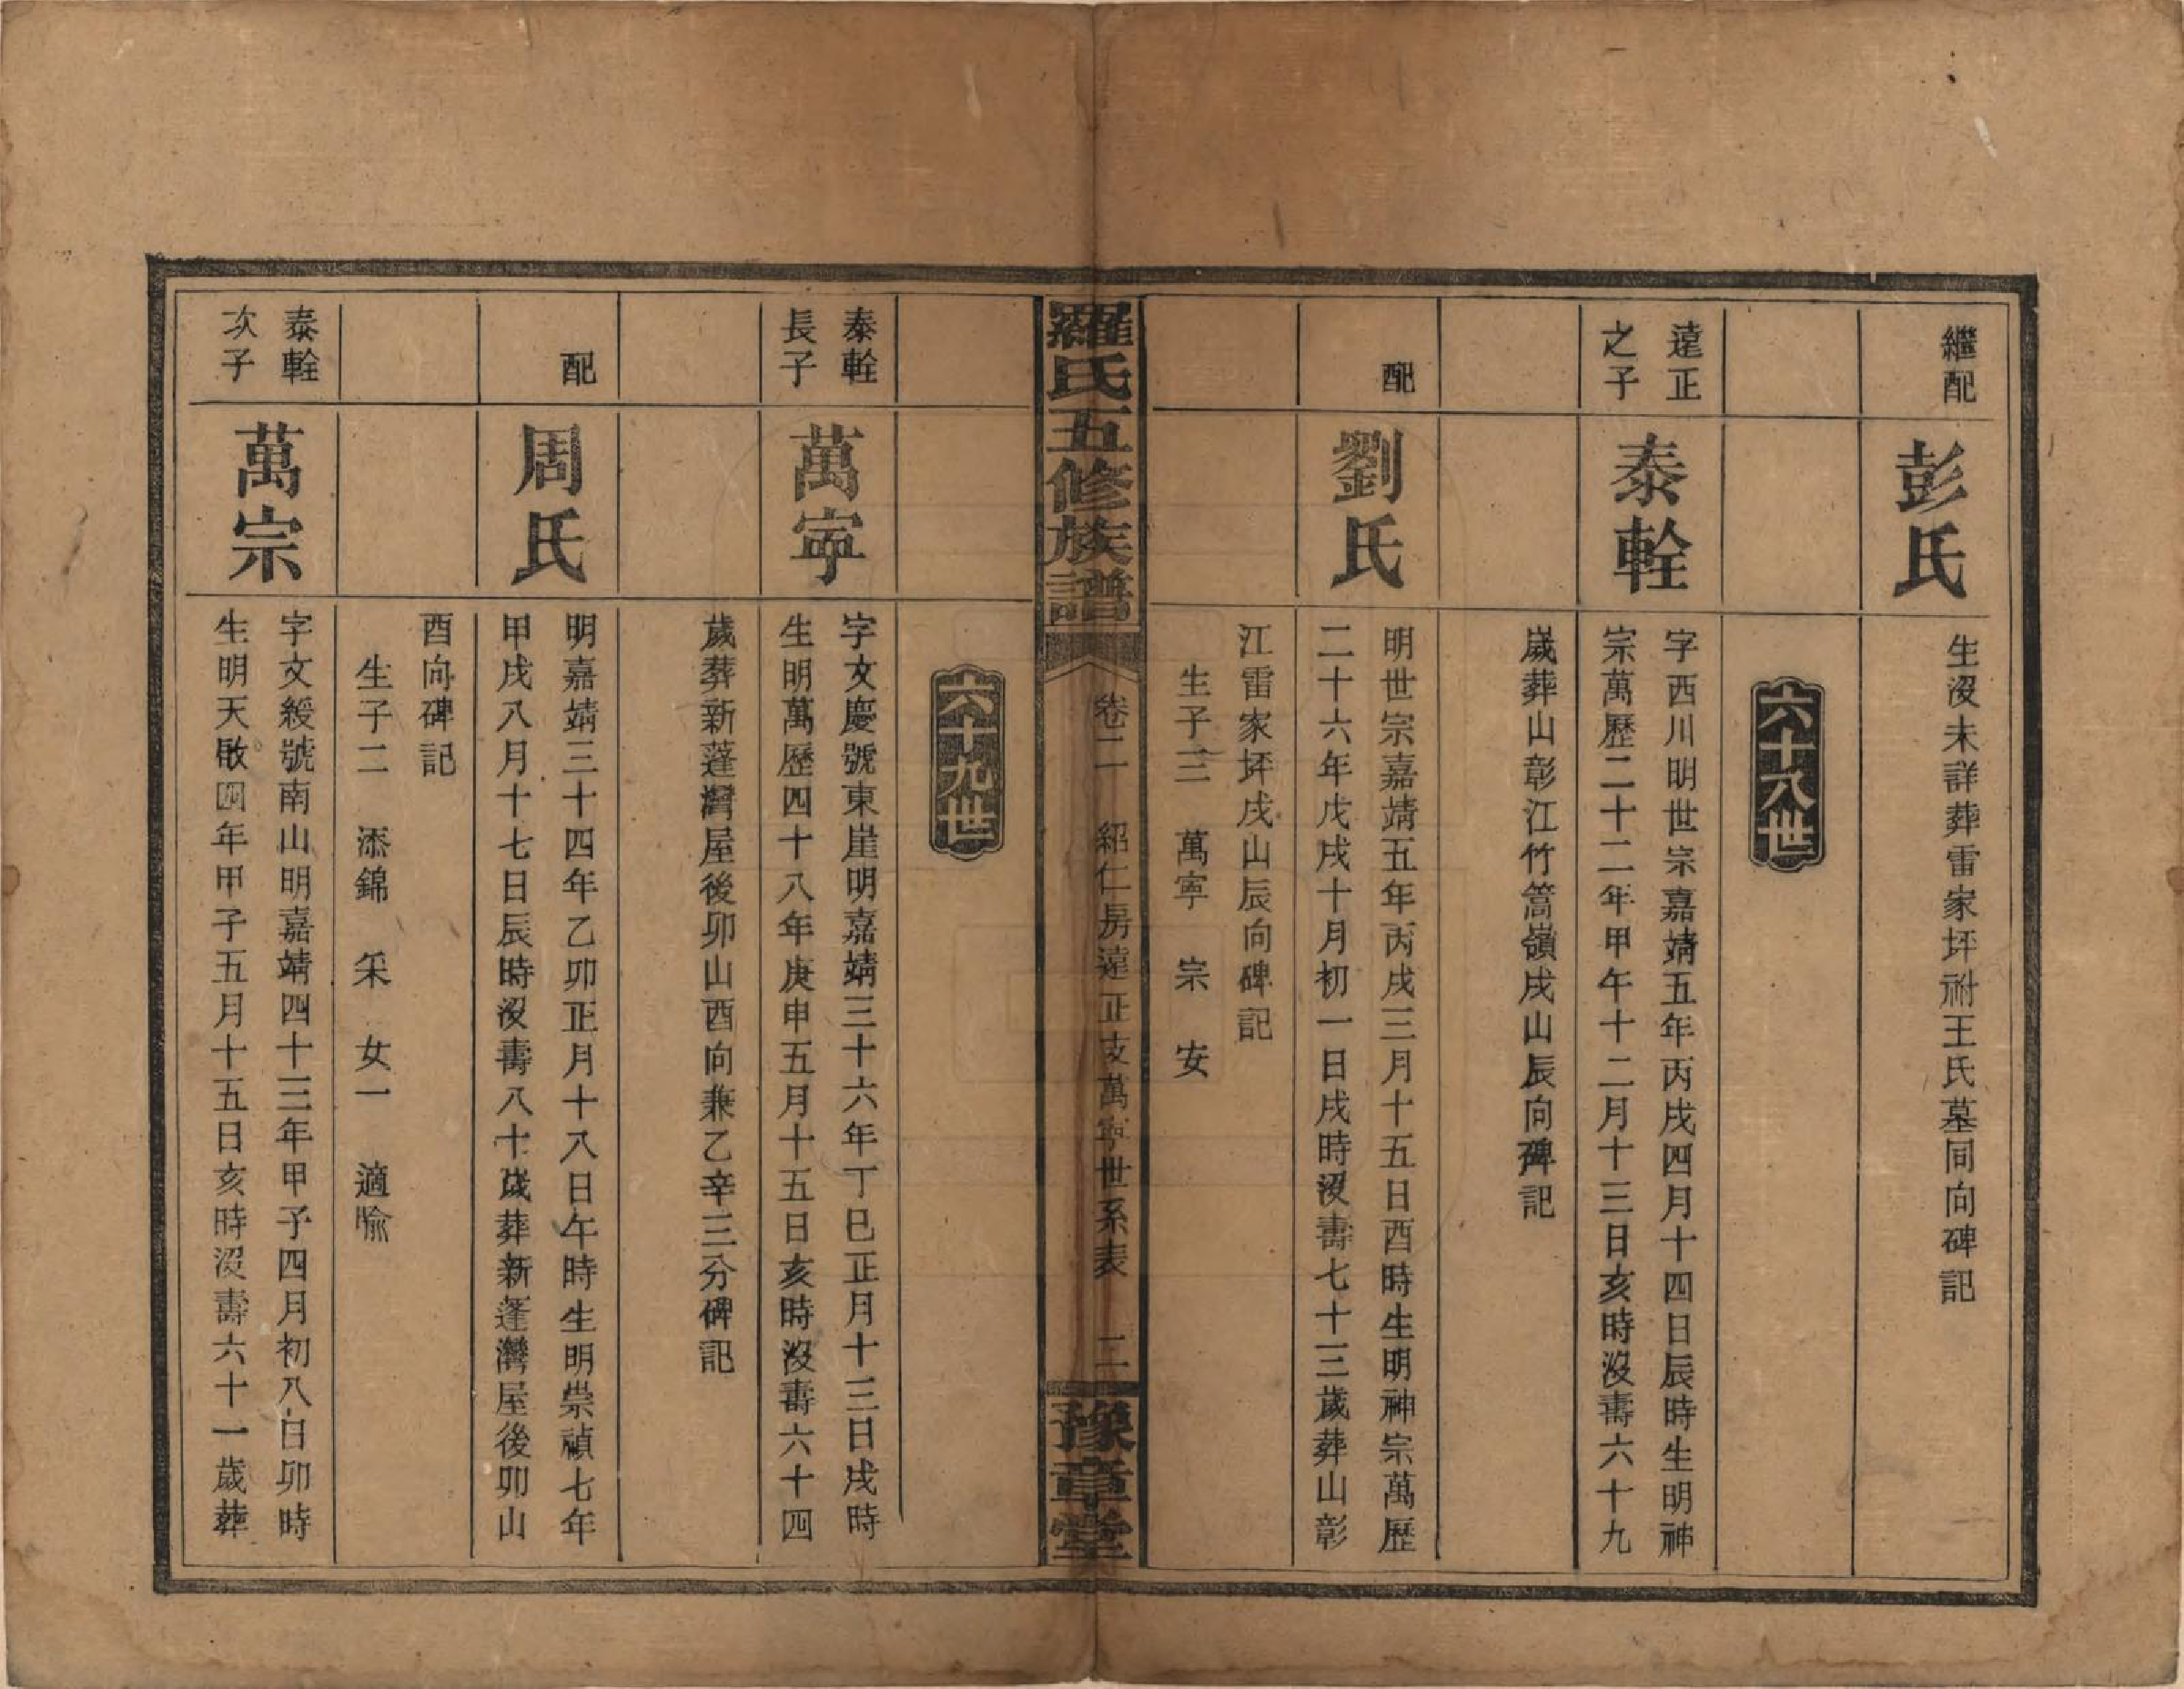 繼配
彭氏
生沒未詳葬雷家坪祔王氏墓同向碑記
六十八世
遠正
之子
泰輇
字西川明世宗嘉靖五年丙戌四月十四日辰時生明神
宗萬歷二十二年甲午十二月十三日亥時沒壽六十九
嵗葬山彰江竹篙嶺戌山辰向碑記
配
劉氏
明世宗嘉靖五年丙戌三月十五日酉時生明神宗萬歷
二十六年戊戌十月初一日戌時沒壽七十三歲葬山彰
江雷家坪戌山辰向碑記
生子三 萬寧 宗 安
羅氏五修族譜
卷二 紹仁房遠正支萬寧世系表 二
豫章堂
六十九世
泰輇
長子
萬寧
字文慶號東崖明嘉靖三十六年丁巳正月十三日戌時
生明萬歷四十八年庚申五月十五日亥時沒壽六十四
歲葬新蓬灣屋後卯山酉向兼乙辛三分碑記
配
周氏
明嘉靖三十四年乙卯正月十八日午時生明崇禎七年
甲戌八月十七日辰時沒壽八十歲葬新蓬灣屋後卯山
酉向碑記
生子二 添錦 釆 女一 適喩
泰輇
次子
萬宗
字文綬號南山明嘉靖四十三年甲子四月初八日卯時
生明天啟四年甲子五月十五日亥時沒壽六十一歲葬